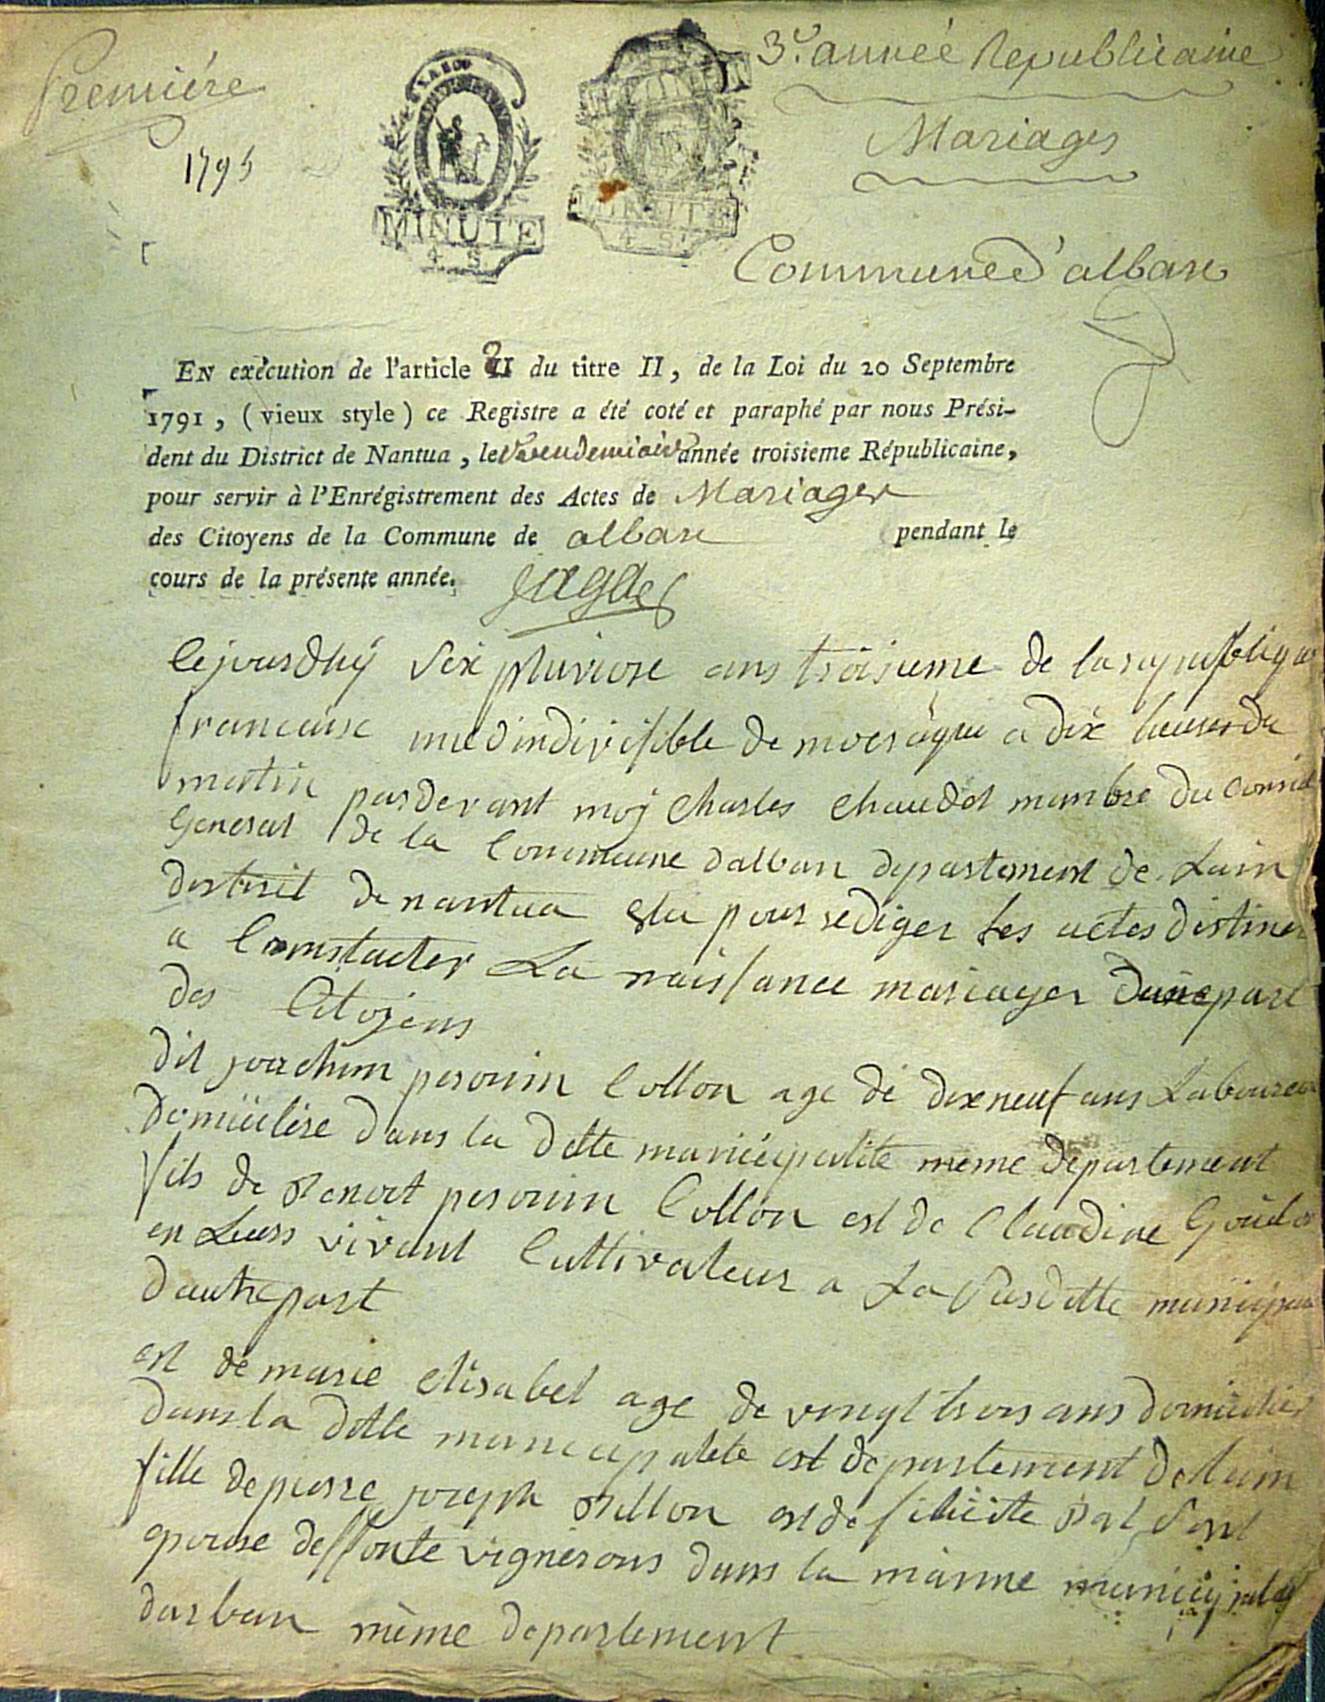 Premiére
1795
MINUTE
4. S.
MINUTE
4 S
3.e année Republicaine
Mariages
Commune d'alban
EN exécution de l'article 2 du titre II, de la Loi du 20 Septembre
1791, (vieux style) ce Registre a été coté et paraphé par nous Prési-
dent du District de Nantua, le vendemiaire année troisieme Républicaine,
pour servir à l'Enrégistrement des Actes de Mariages
des Citoyens de la Commune de alban pendant le
cours de la présente année.
Cejourdhÿ Six pluviose ans troisieme de la republique
francaise une dindivisible democraque a dix heures du
matin pardevant moÿ Charles Chaudet manbre du Conseil
General de la Commune dalban departement de Lain
distrit de nantua elu pour rediger les actes distines
a Constacter La naissance mariages dune part
des Citojens
dit joachim perouin Collon age de dixneuf ans Laboureur
domicilise dans la ditte municipalite meme departement
fils de Benoit perouin Collon est de Claudine
en Leurs vivant Cultivateur a La Susditte municipa
dautre part
est de marie elisabet age de vingt trois ans domicilie
dans la ditte municipalite est departement de Lain
fille de pierre joseph Billon est de filicite
epouse deffonte vignerons dans la mainne municipalite
darban même departement